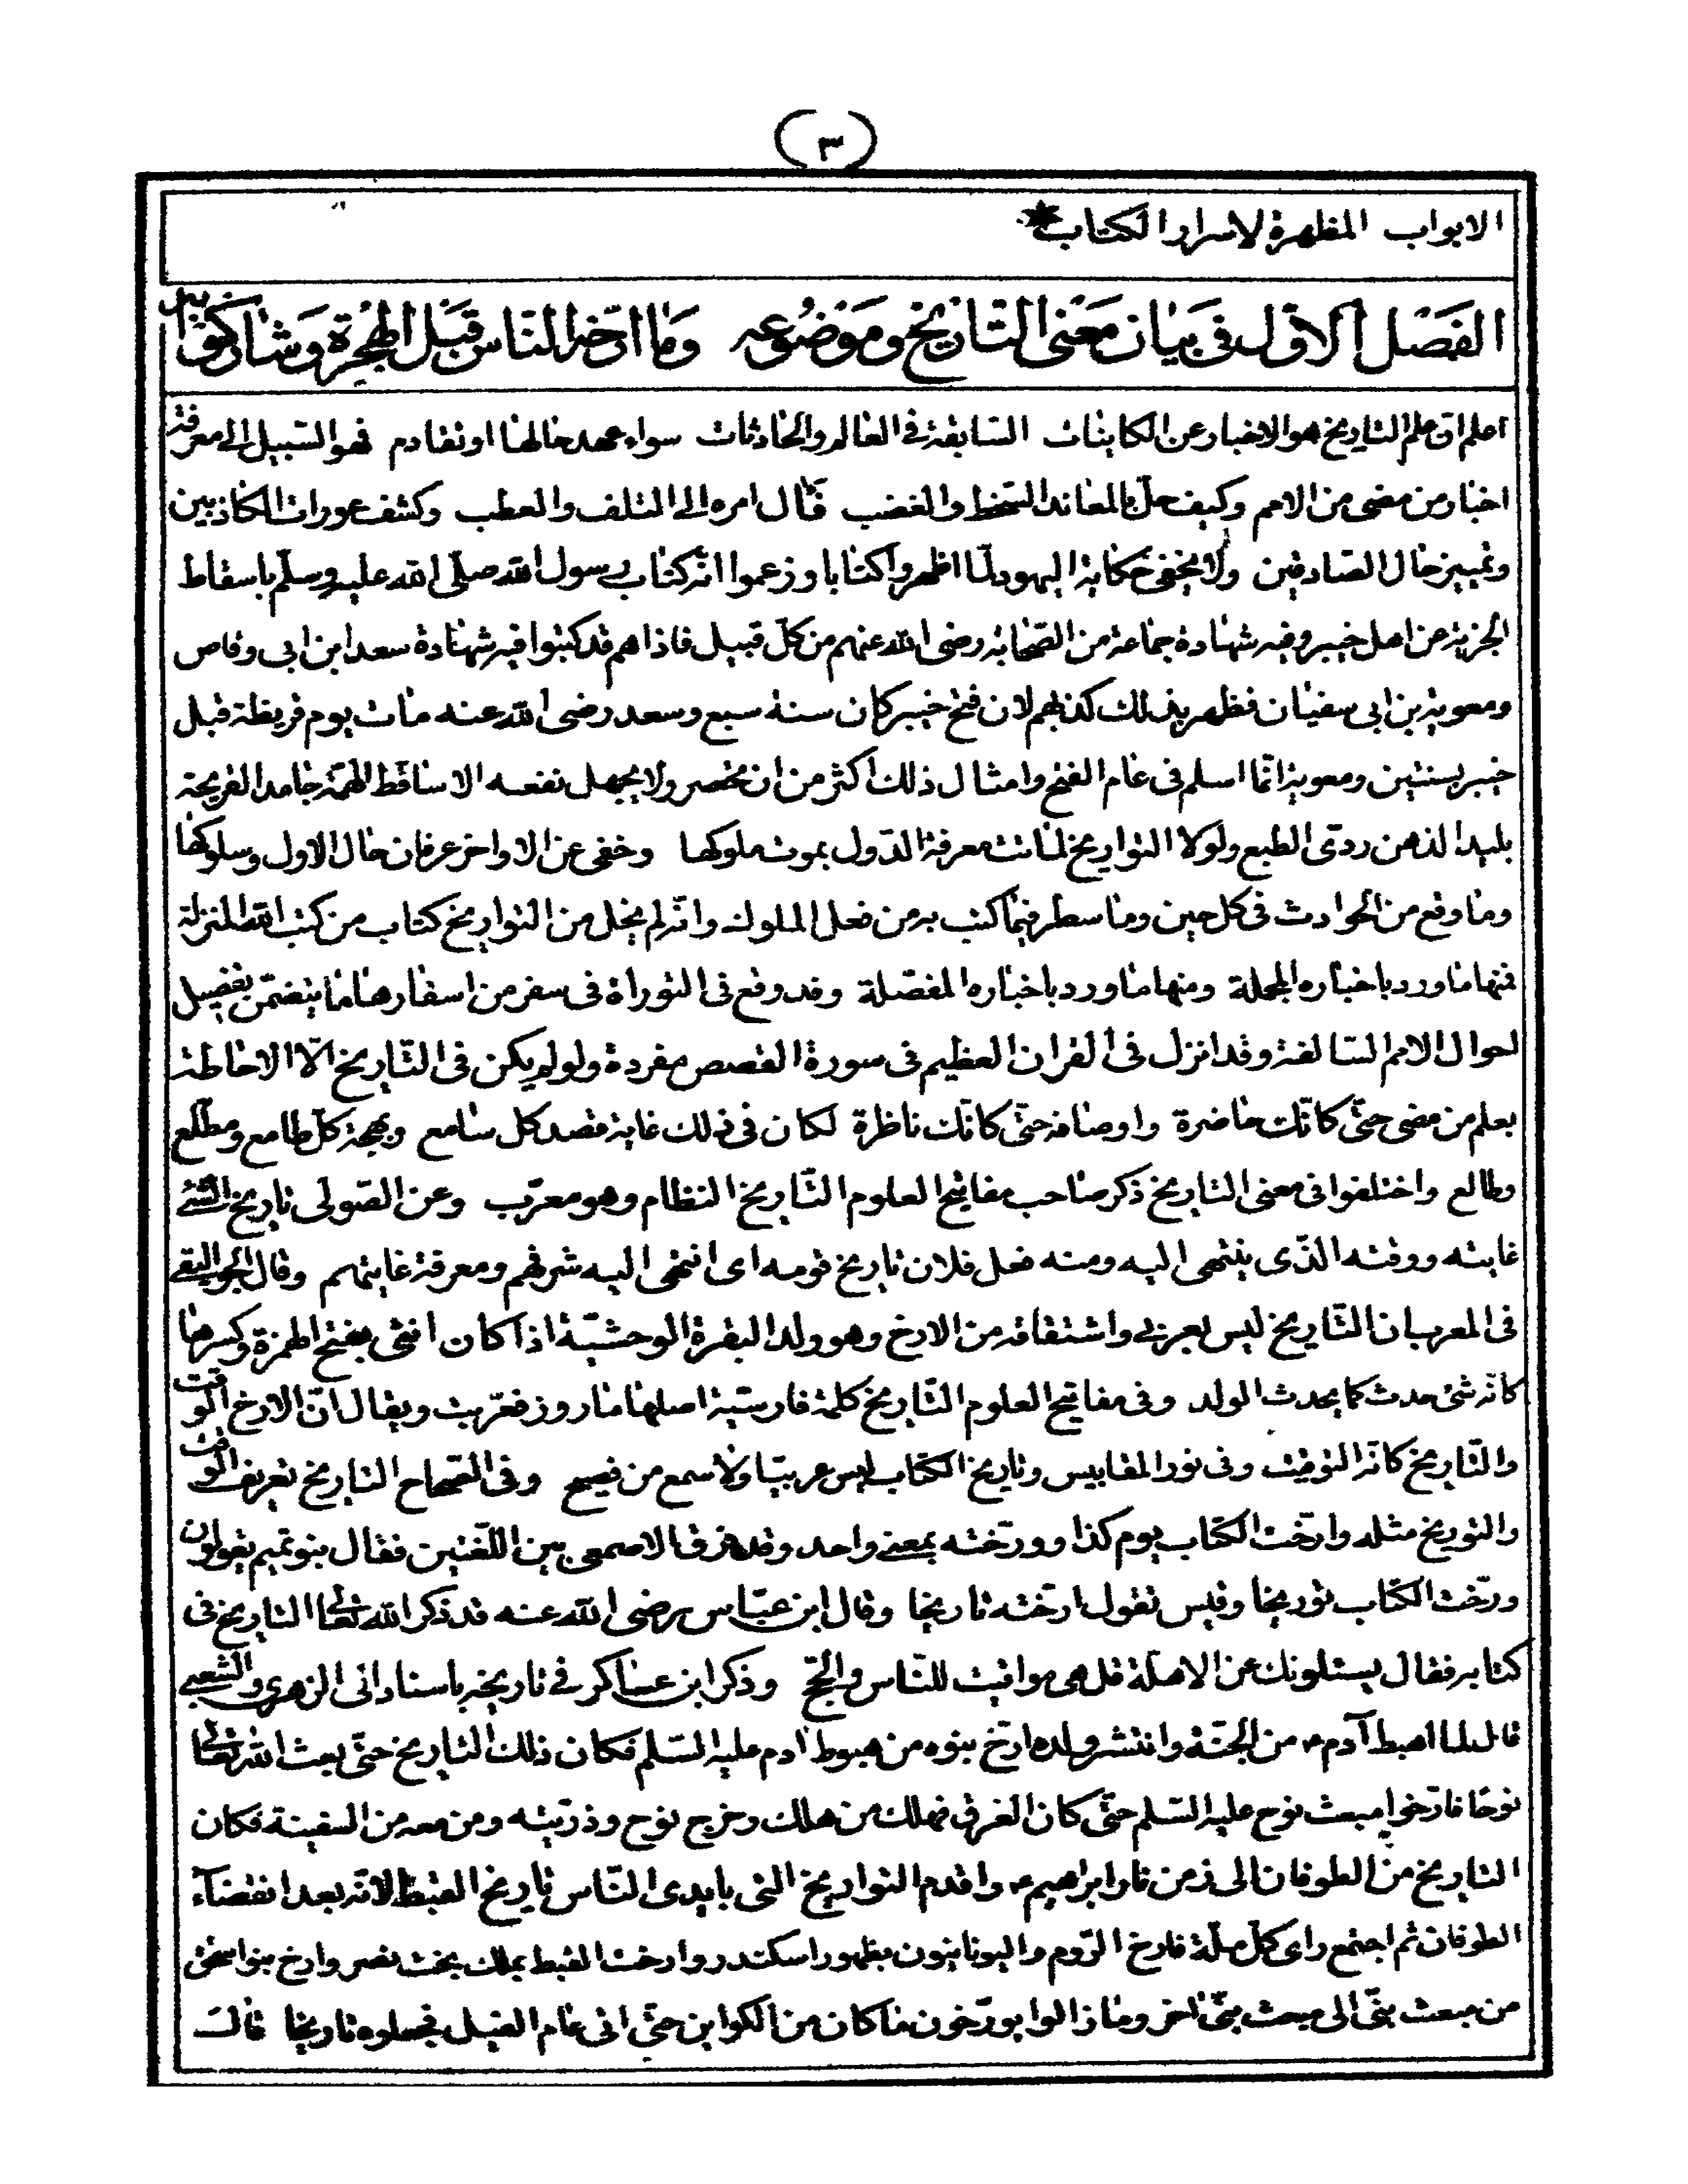 (٣)
الابواب المظهرة لاسرار الكتاب
الفصل الاول فى بيان معنى التاريخ وموضوعه وما ارخه الناس قبل الهجرة وشاركوا
اعلم ان علم التاريخ هو الاخبار عن الكاينات السابقة فى العالم والحادثات سواء عهد حالها او تقادم فهو السبيل الى معرفة
اخبار من مضى من الامم وكيف حل بالمعاند السخط والغضب فآل امره الى التلف والعطب وكشف عورات الكاذبين
وتمييز حال الصادقين ولا يخفى حكاية اليهود لما اظهروا كتابا وزعموا انه كتاب رسول الله صلى الله عليه وسلم باسقاط
الجزية عن اهل خيبر وفيه شهادة جماعة من الصحابة رضى الله عنهم من كل قبيل فاذا هم قد كتبوا فيه شهادة سعد ابن ابى وقاص
ومعوية بن ابى سفيان فظهر بذلك كذبهم لان فتح خيبر كان سنة سبع وسعد رضى الله عنه مات يوم قريظة قبل
خيبر بسنتين ومعوية انما اسلم فى عام الفتح وامثال ذلك اكثر من ان تحصر ولا يجهل نفعه الا ساقط الهمة جامد القريحة
بليد الذهن ردى الطبع ولولا التواريخ لماتت معرفة الدول بموت ملوكها وخفى عن الاواخر عرفان حال الاول وسلوكها
وما وقع من الحوادث فى كل حين وما سطر فيما كتب به من فعل الملوك وانه لم يخل من التواريخ كتاب من كتب الله المنزلة
فمنها ما ورد باخباره المجملة ومنها ما ورد باخباره المفصلة وقد وقع فى التوراة فى سفر من اسفارها ما يتضمن تفصيل
احوال الامم السالفة وقد انزل فى القران العظيم فى سورة القصص مفردة ولو لم يكن فى التاريخ الا الاحاطة
بعلم من مضى حتى كانك حاضرة واوصافه حتى كانك ناظرة لكان فى ذلك غاية قصد كل سامع وبهجة كل طامع ومطلع
وطالع واختلفوا فى معنى التاريخ ذكر صاحب مفاتيح العلوم التاريخ النظام وهو معرب وعن الصولى تاريخ الشئ
غايته ووقته الذى ينتهى اليه ومنه فعل فلان تاريخ قومه اى انتهى اليه شرفهم ومعرفة غايتهم وقال الجواليقى
فى المعرب ان التاريخ ليس بعربى واشتقاقه من الارخ وهو ولد البقرة الوحشية اذا كان انثى بفتح الهمزة وكسرها
كانه شئ حدث كما يحدث الولد وفى مفاتيح العلوم التاريخ كلمة فارسية اصلها ماروز فعربت ويقال ان الارخ الوقت
والتاريخ كانه التوقيت وفى نور المقابيس وتاريخ الكتاب ليس عربيا ولا سمع من فصيح وفى الصحاح التاريخ تعريف الوقت
والتوريخ مثله وارخت الكتاب يوم كذا وورخته بمعنى واحد وقد فرق الاصمعى بين اللغتين فقال بنو تميم يقولون
ورخت الكتاب توريخا وقيس تقول ارخته تاريخا وقال ابن عباس رضى الله عنه قد ذكر الله تعالى التاريخ فى
كتابه فقال يسئلونك عن الاهلة قل هى مواقيت للناس والحج وذكر ابن عساكر فى تاريخه باسناد الى الزهرى والشعبى
قال لما اهبط آدم ع من الجنة وانتشر ولده ارخ بنوه من هبوط ادم عليه السلم فكان ذلك التاريخ حتى بعث الله تعالى
نوحا فارخوا مبعث نوح عليه السلم حتى كان الغرق فهلك من هلك وخرج نوح وذريته ومن معه من السفينة فكان
التاريخ من الطوفان الى زمن نار ابراهيم ع واقدم التواريخ التى بايدى الناس تاريخ القبط لانه بعد انقضآء
الطوفان ثم اجتمع راى كل ملة فارخ الروم واليونانيون بظهور اسكندر وارخت القبط بملك بخت نصر وارخ بنو اسحق
من مبعث نبى الى مبعث نبى اخر وما زالوا يورخون ما كان من الكواين حتى اتى عام الفيل فجعلوه تاريخا قالت